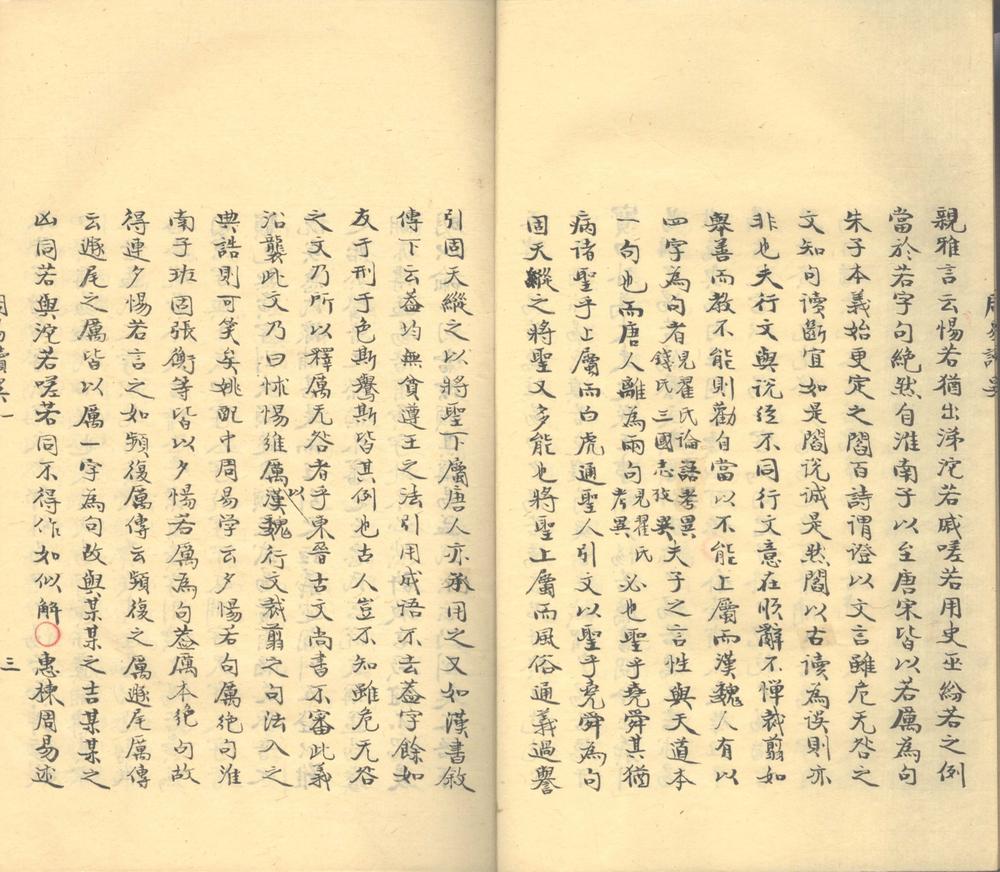 親雅言云惕若猶出涕沱若戚嗟若用史巫紛若之例
當於若字句絶然自淮南子以至唐宋皆以若厲為句
朱子本義始更定之閻百詩謂證以文言雖危无咎之
文知句讀斷宜如是閻説誠是然閻以古讀為誤則亦
非也夫行文與説經不同行文意在順辭不憚裁翦如
舉善而教不能則勸自當以不能上屬而漢魏人有以
四字為句者見翟氏論語考異錢氏三國志攷異夫子之言性與天道本
一句也而唐人離為兩句見翟氏考異必也聖乎堯舜其猶
病諸聖乎上屬而白虎通聖人引文以聖乎堯舜為句
固天縱之將聖又多能也將聖上屬而風俗通義過譽
引固天縱之以將聖下屬唐人亦承用之又如漢書敘
傳下云葢均無貧遵王之法引用成語不去葢字餘如
友于刑于色斯舉斯皆其例也古人豈不知雖危无咎
之文乃所以釋厲无咎者乎東晉古文尚書不審此義
沿襲此文乃曰怵惕維厲以漢魏行文裁翦之句法入之
典誥則可笑矣姚配中周易学云夕惕若句厲絶句淮
南子班固張衡等皆以夕惕若厲為句葢厲本絶句故
得連夕惕若言之如頻復厲傳云頻復之厲遯尾厲傳
云遯尾之厲皆以厲一字為句故與某某之吉某某之
凶同若與沱若嗟若同不得作如似解○惠棟周易述
三